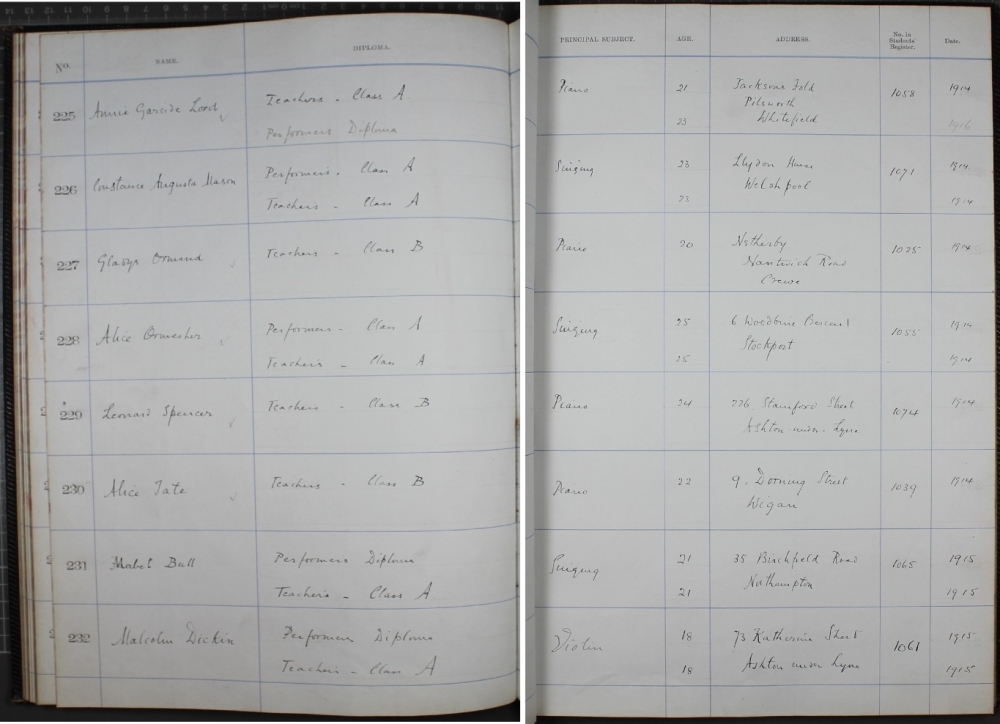 No. NAME. DIPLOMA.
225 Annie Garside Lord Teachers - Class A
Performers Diploma
226 Constance Augusta Mason Performers. Class A
Teachers - Class A
227 Gladys Ormand Teachers - Class B
228 Alice Ormesher Performers - Class A
Teachers - Class A
229 Leonard Spencer Teachers - Class B
230 Alice Tate Teachers - Class B
231 Mabel Bull Performers Diploma
Teachers - Class A
232 Malcolm Dickin Performers Diploma
Teachers - Class A
PRINCIPAL SUBJECT. AGE. ADDRESS. No. in Students' Register. Date.
Piano 21 Jacksons Fold 1058 1914
Pilsworth
23 Whitefield 1916
Singing 23 House 1071 1914
Welshpool
23 1914
Piano 20 Netherby 1025 1914
Nantwich Road
Crewe
Singing 25 6 Woodbine Crescent 1055 1914
Stockport
25 1914
Piano 24 226 Stamford Street 1074 1914
Ashton-under-Lyne
Piano 22 9. Dorning Street 1039 1914
Wigan
Singing 21 35 Birchfield Road 1065 1915
Northampton
21 1915
Violin 18 73 Katherine Street 1061 1915
18 Ashton under Lyne 1915